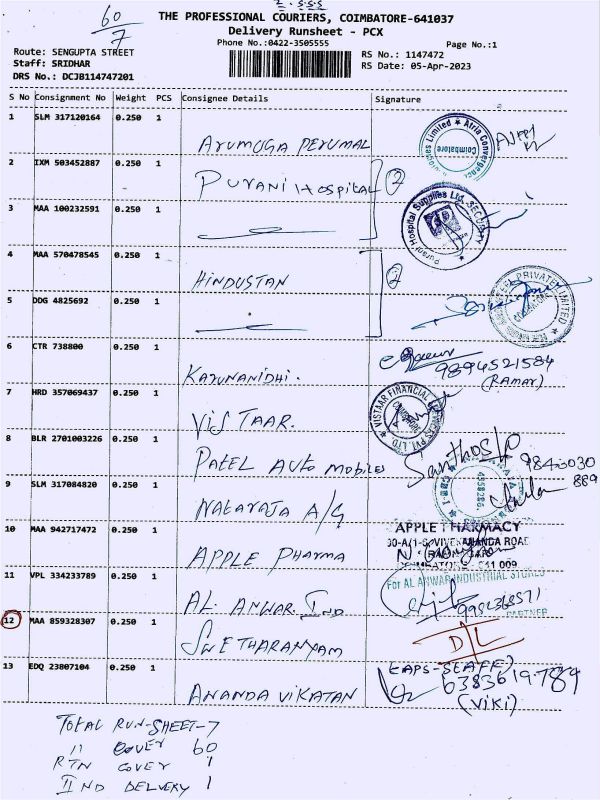 60
7
THE PROFESSIONAL COURIERS, COIMBATORE-641037
Delivery Runsheet - PCX
Phone No.:0422-3505555
Page No.:1
Route: SENGUPTA STREET
Staff: SRIDHAR
DRS No.: DCJB114747201
RS No.: 1147472
RS Date: 05-Apr-2023
S No Consignment No Weight PCS Consignee Details Signature
1 SLM 317120164 0.250 1 ARUMUGA PERUMAL
Atria Convergence
Coimbatore
2 IXM 503452887 0.250 1 PURANI HOSPITAL 2
3 MAA 100232591 0.250 1
Purani Hospital Supplies Ltd. SECURITY
4 MAA 570478545 0.250 1 HINDUSTAN 2
5 DDG 4825692 0.250 1
PRIVATE LIMITED
6 CTR 738800 0.250 1 KARUNANIDHI.
9894521584
(RAMAR)
7 HRD 357069437 0.250 1 VISTAAR.
VISTAAR FINANCIAL SERVICES PVT. LTD.
8 BLR 2701003226 0.250 1 PATEL AUTO MOBILES
Santhosh
9 SLM 317084820 0.250 1 NATARAJA A/G
9843030
889
10 MAA 942717472 0.250 1 APPLE PHARMA
APPLE PHARMACY
VIVEKANANDA ROAD
11 VPL 334233789 0.250 1 AL. ANWAR IND
For AL ANWAR INDUSTRIAL STORES
PARTNER
12 MAA 859328307 0.250 1 SWETHARANYAM
D/L
13 EDQ 23807104 0.250 1 ANANDA VIKATAN
(EAPS-STAFF)
6383619789
(VIKI)
TOTAL RUN-SHEET-7
" COVER 60
RTN COVER 1
II ND DELIVERY 1